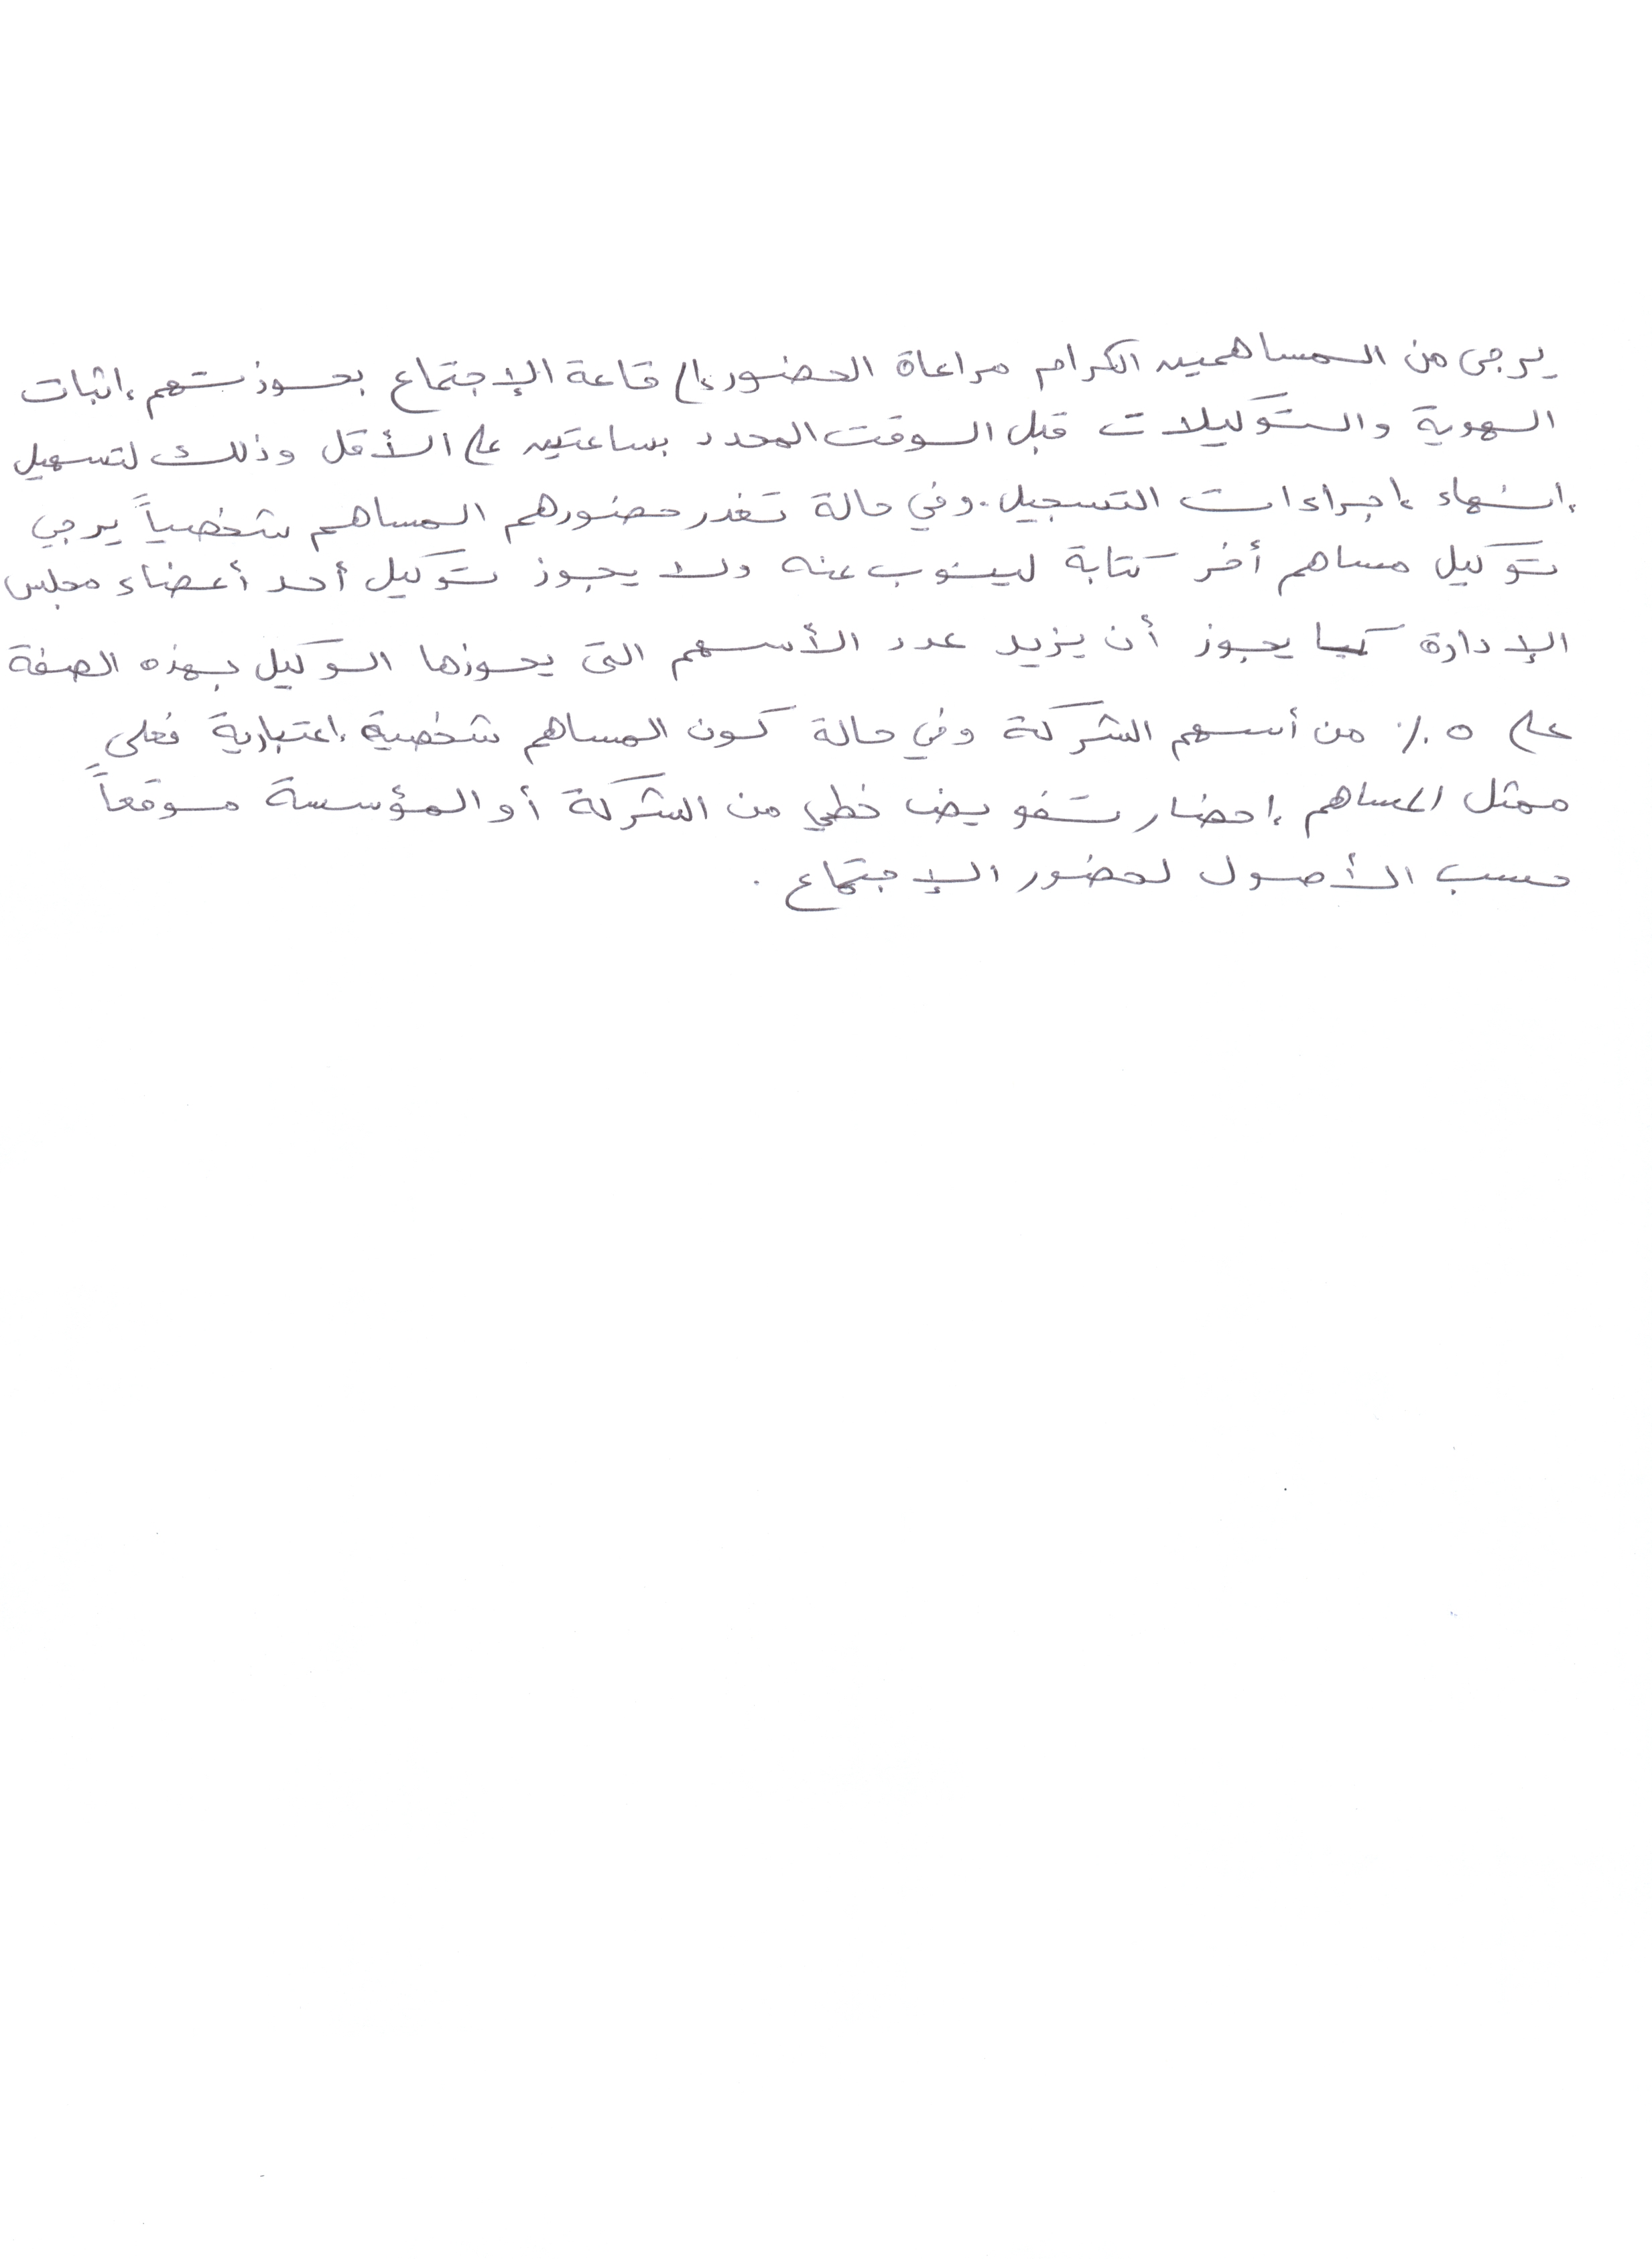 يرجى من المساهمين الكرام مراعاة الحضور إلى قاعة الإجتماع بحوزتهم إثبات
الهوية والتوكيلات قبل الوقت المحدد بساعتين على الأقل وذلك لتسهيل
إنهاء إجراءات التسجيل. وفي حالة تغدر حضورهم المساهم شخصياً يرجي
توكيل مساهم أخر كتابة لينوب عنه ولا يجوز توكيل أحد أعضاء مجلس
الإدارة كما يجوز أن يزيد عدد الأسهم التى يحوزها الوكيل بهذه الصفة
على ٥٪ من أسهم الشركة وفي حالة كون المساهم شخصية إعتبارية فعلى
ممثل المساهم إحضار تفويض خطي من الشركة أو المؤسسة موقعاً
حسب الأصول لحضور الإجتماع .